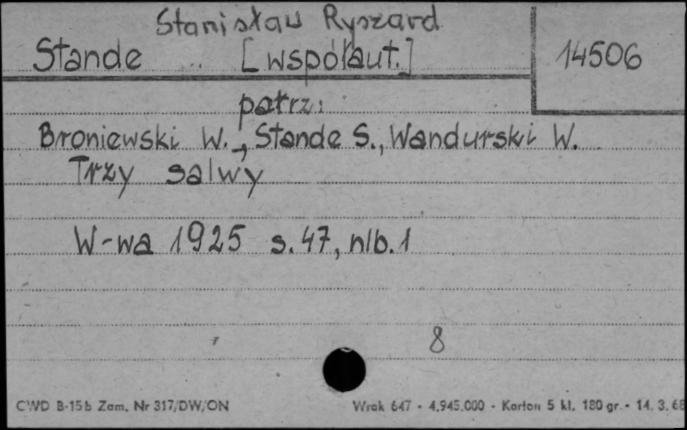 Stanisław Ryszard
Stande [współaut.] 14506
patrz:
Broniewski W., Stande S., Wandurski W.
Trzy salwy
W-wa 1925 s. 47, nlb. 1
8
CWD B-15b Zam. Nr 317/DW/ON Wrak 647 - 4.945.000 - Karton 5 kl. 180 gr. - 14. 3. 68